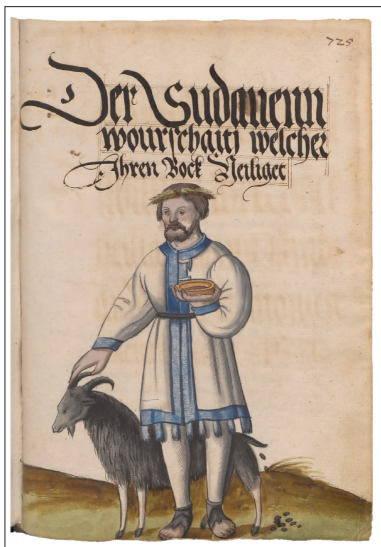 725
Der Sudauenn
wourschaiti welcher
Ihren Bock Heiliget